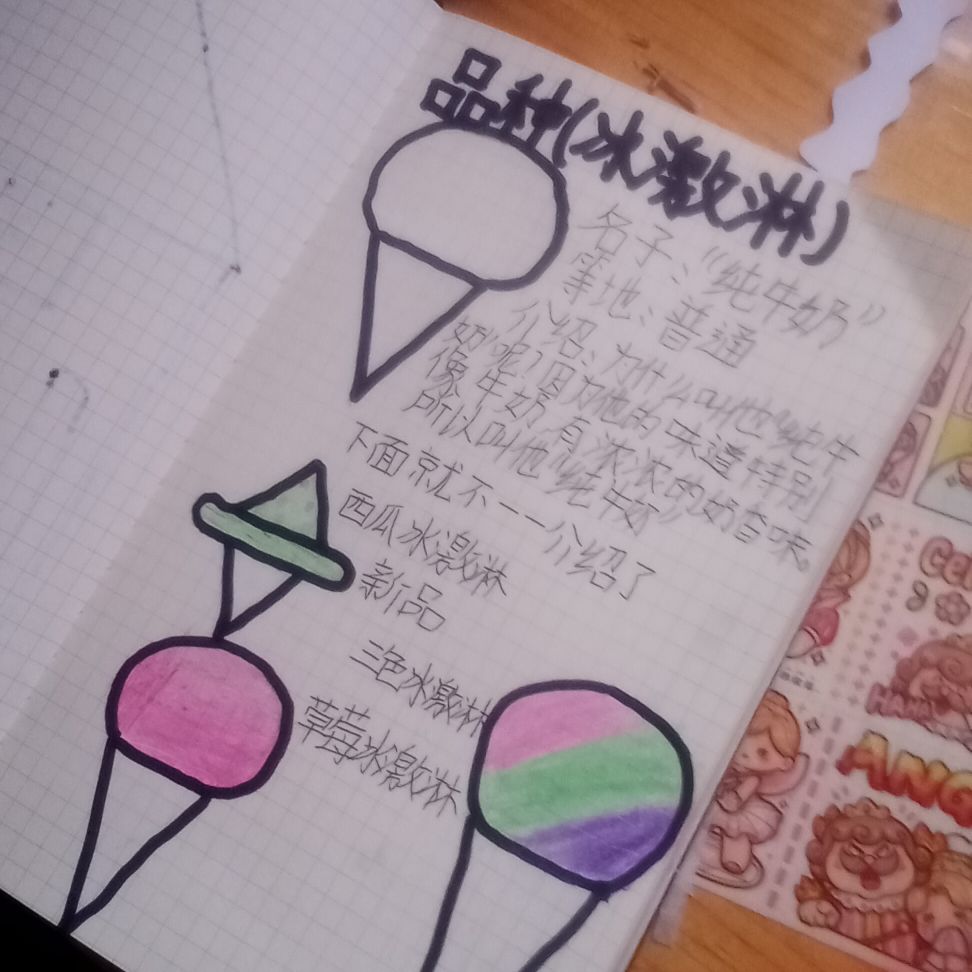 品种(冰激淋)
名子、“纯牛奶”
等地、普通
介绍、为什么叫他“纯牛
奶”呢?因为他的味道特别
像牛奶,有浓浓的奶香味。
所以叫他“纯牛奶”
下面就不一一介绍了
西瓜冰激淋
新品
三色冰激淋
草莓冰激淋